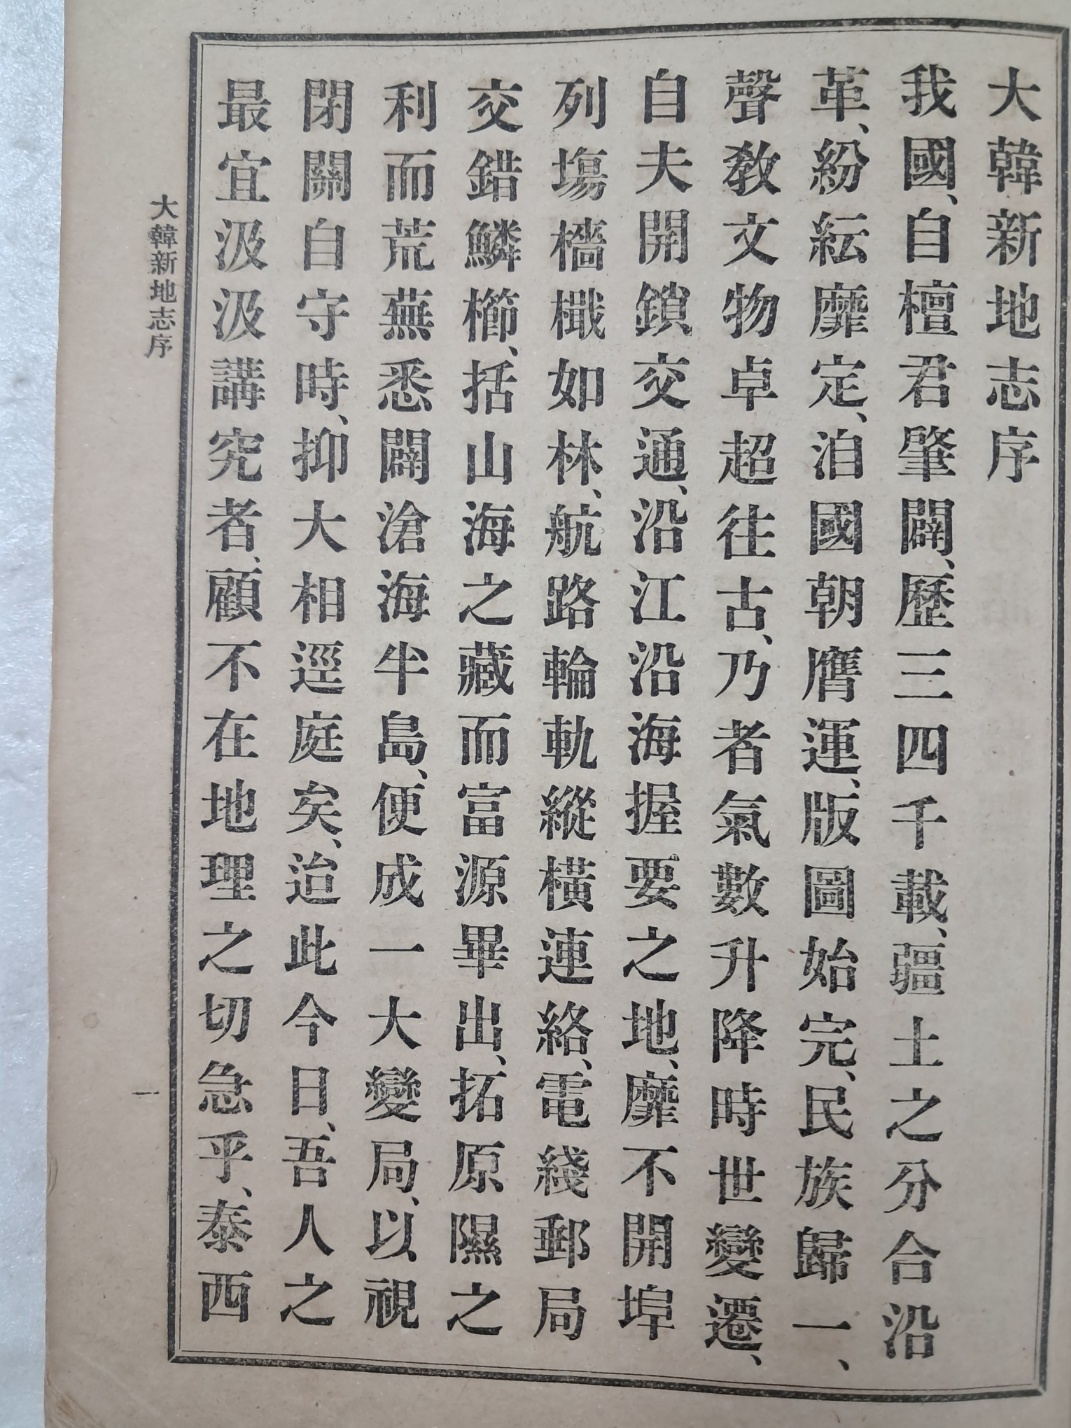 大韓新地志序
我國、自檀君肇闢、歷三四千載、疆土之分合沿
革、紛紜靡定、洎國朝膺運、版圖始完、民族歸一、
聲敎文物卓超往古、乃者氣數升降時世變遷、
自夫開鎖交通、沿江沿海握要之地、靡不開埠
列塲檣檝如林、航路輪軌縱橫連絡、電綫郵局
交錯鱗櫛、括山海之藏而富源畢出、拓原隰之
利而荒蕪悉闢滄海半島、便成一大變局、以視
閉關自守時、抑大相逕庭矣、迨此今日、吾人之
最宜汲汲講究者、顧不在地理之切急乎、泰西
大韓新地志序
一